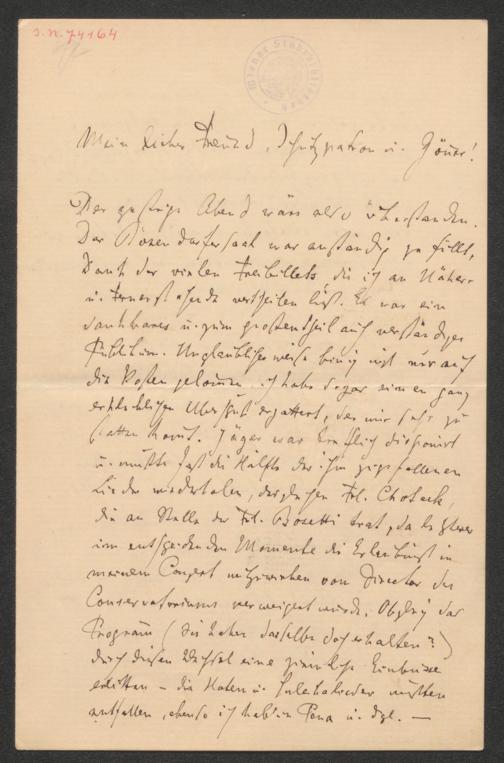 J.N. 74164
Wiener Stadtbibliothek
Mein lieber Freund, Schutzpatron u. Gönner!
Der gestrige Abend wäre also überstanden.
Der Bösendorfersaal war anständig gefüllt,
Dank der vielen Freibillets die ich an Näher-
u. Fernerstehende vertheilen ließ. Es war ein
dankbares u. zum großentheil auch verständiges
Publikum. Unglaublicherweise bin ich nicht nur auf
die Kosten gekommen, ich habe sogar einen ganz
erklecklichen Überschuß ergattert, der mir sehr zu
statten kommt. Jäger war trefflich disponirt
u. mußte fast die Hälfte der ihm zugefallenen
Lieder wiederholen, desgleichen Frl. Choteck,
die an Stelle der Frl. Bosetti trat, da letzterer
im entscheidenden Momente die Erlaubniß in
meinem Concert mitzuwirken vom Director des
Conservatoriums verweigert wurde. Obgleich das
Program̄ (Sie haben dasselbe doch erhalten?)
durch diesen Wechsel eine ziemliche Einbuße
erlitten – die u. mußten
entfallen, ebenso ich hab' in Penna u. dgl. —